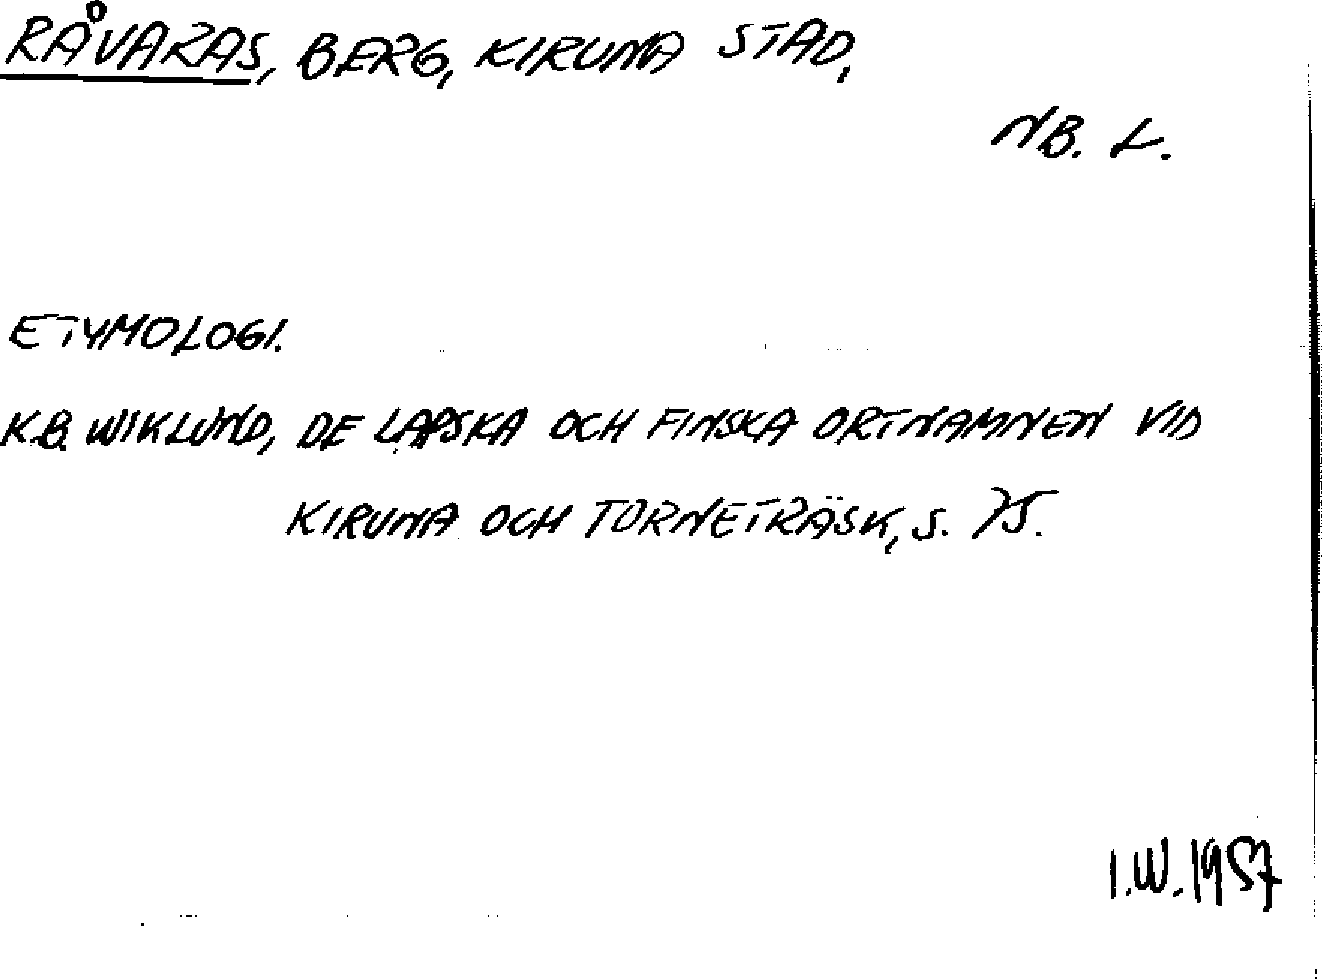 RÅVARAS, BERG, KIRUNA STAD,
NB. L.
ETYMOLOGI.
K.B. WIKLUND, DE LAPSKA OCH FINSKA ORTNAMNEN VID
KIRUNA OCH TORNETRÄSK, S. 75.
I.W. 1957